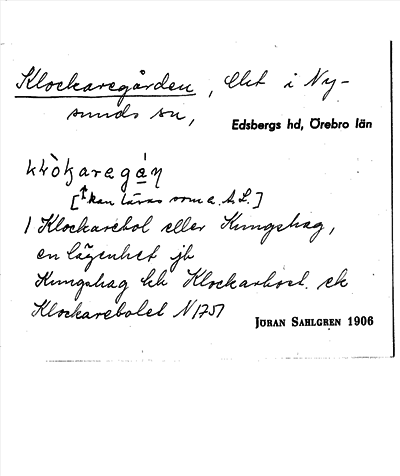 Klockaregården, Ebet i Ny-
sunds sn,
Edsbergs hd, Örebro län
[↑kan läsas som a. h L.]
1 Klockarebol eller Kungshag,
en lägenhet jb
Kungshag hk Klockarbost. ek
Klockarebolet N 1757
JÖRAN SAHLGREN 1906